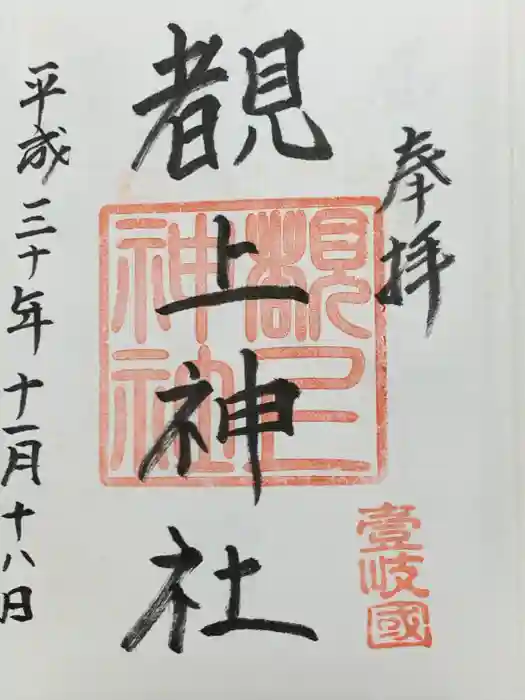 奉拝
壹岐國
覩上神社
覩上神社
平成三十年十一月十八日